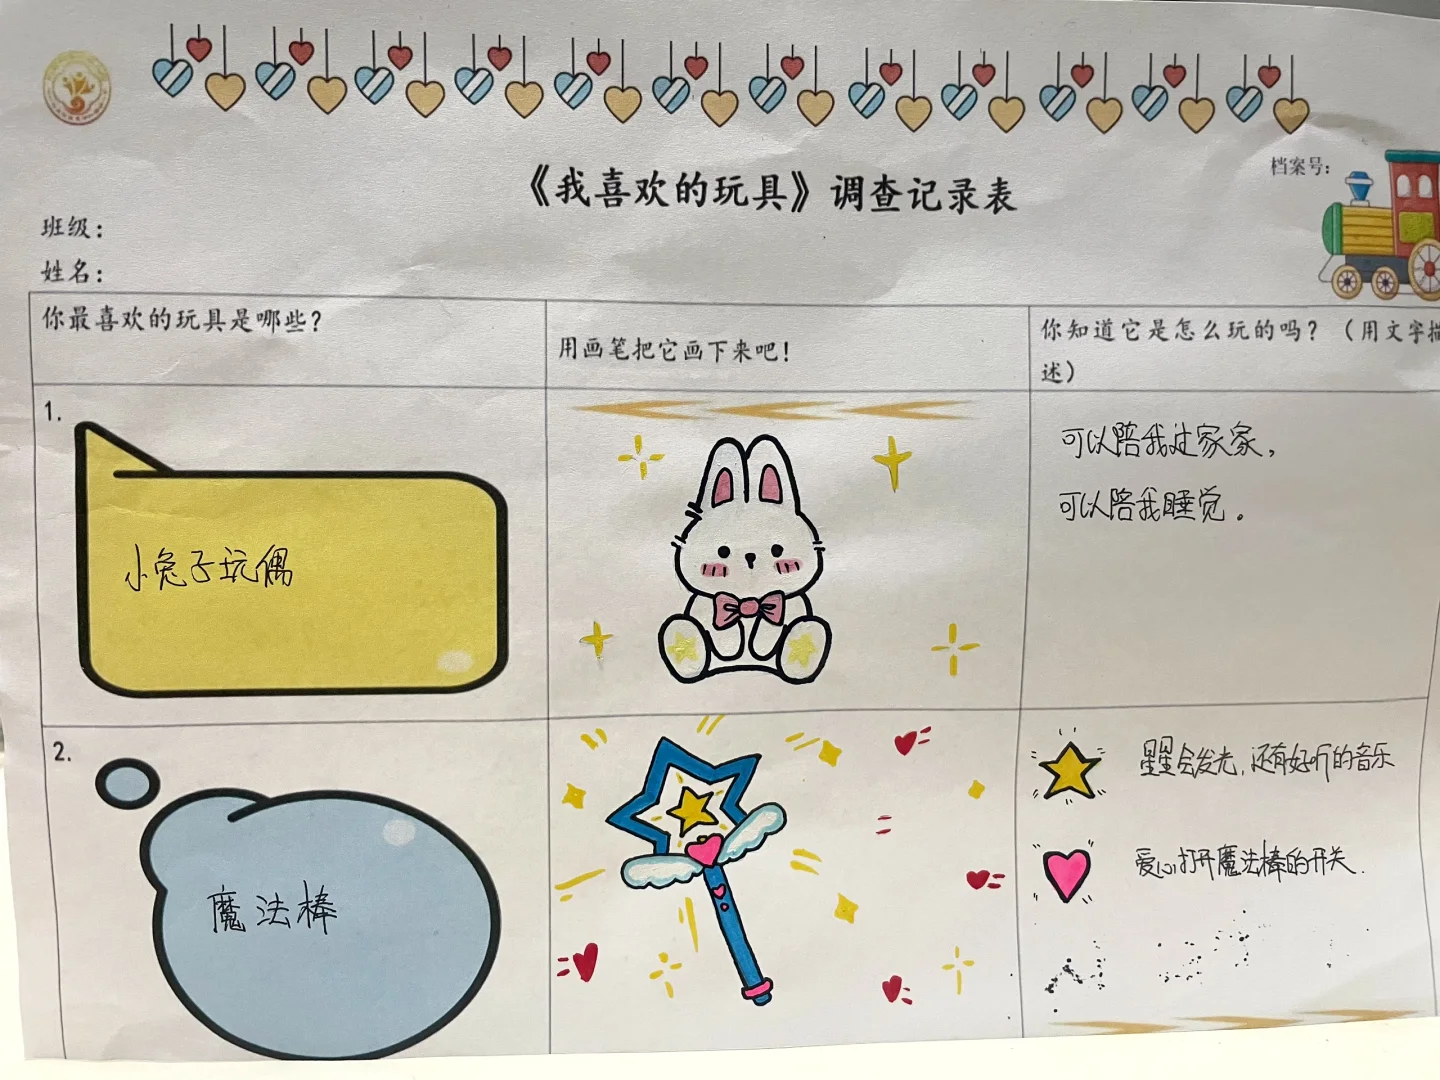 档案号：
《我喜欢的玩具》调查记录表
班级：
姓名：
你最喜欢的玩具是哪些？
用画笔把它画下来吧！
你知道它是怎么玩的吗？（用文字描
述）
1.
小兔子玩偶
可以陪我过家家，
可以陪我睡觉。
2.
魔法棒
星星会发光，还有好听的音乐
爱心打开魔法棒的开关.